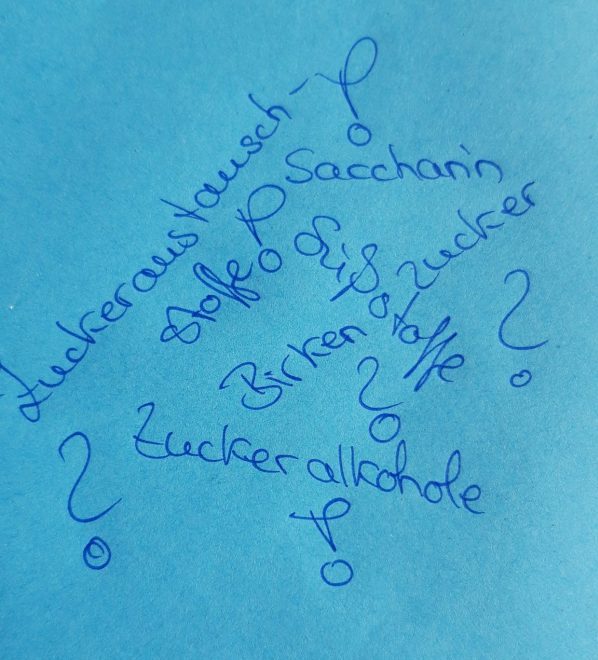 Zuckeraustausch-
stoffe
!
!
Saccharin
Süßstoffe
Birkenzucker
?
?
Zuckeralkohole
?
!